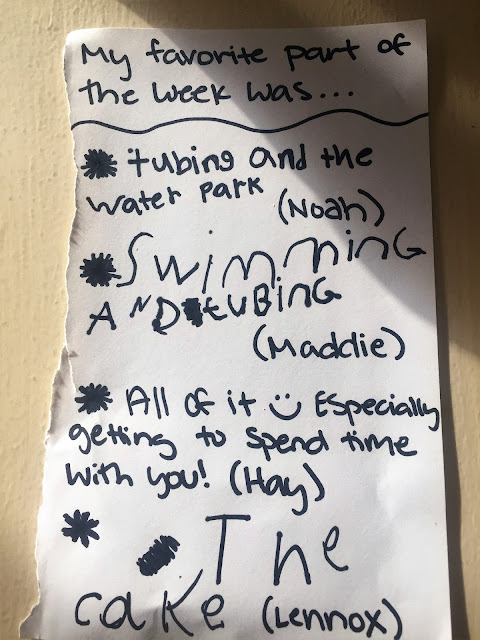 My favorite part of
the week was...
tubing and the
water park
(Noah)
SwimmING
AND tUBING
(Maddie)
All of it Especially
getting to spend time
with you! (Hay)
The
cake (Lennox)